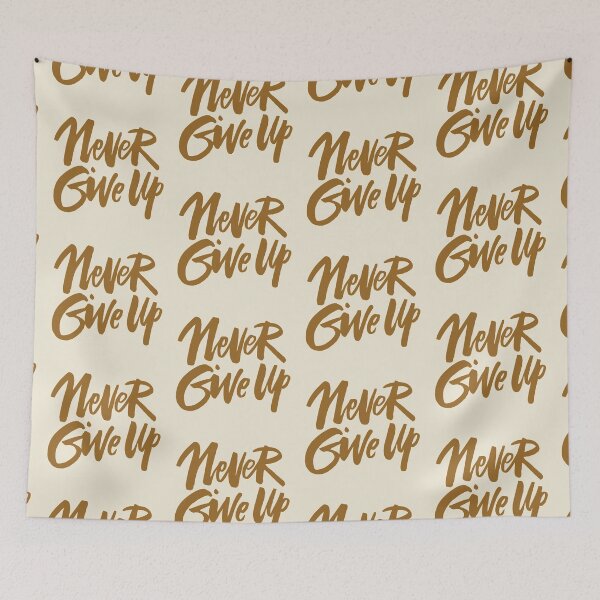 Give Up
Never
Give Up
Never
Give Up
Never
Give Up
Never
Never
Give Up
Never
Give Up
Never
Give Up
Never
Give Up
Give Up
Never
Give Up
Never
Give Up
Never
Give Up
Never
Never
Give Up
Never
Give Up
Never
Give Up
Never
Give Up